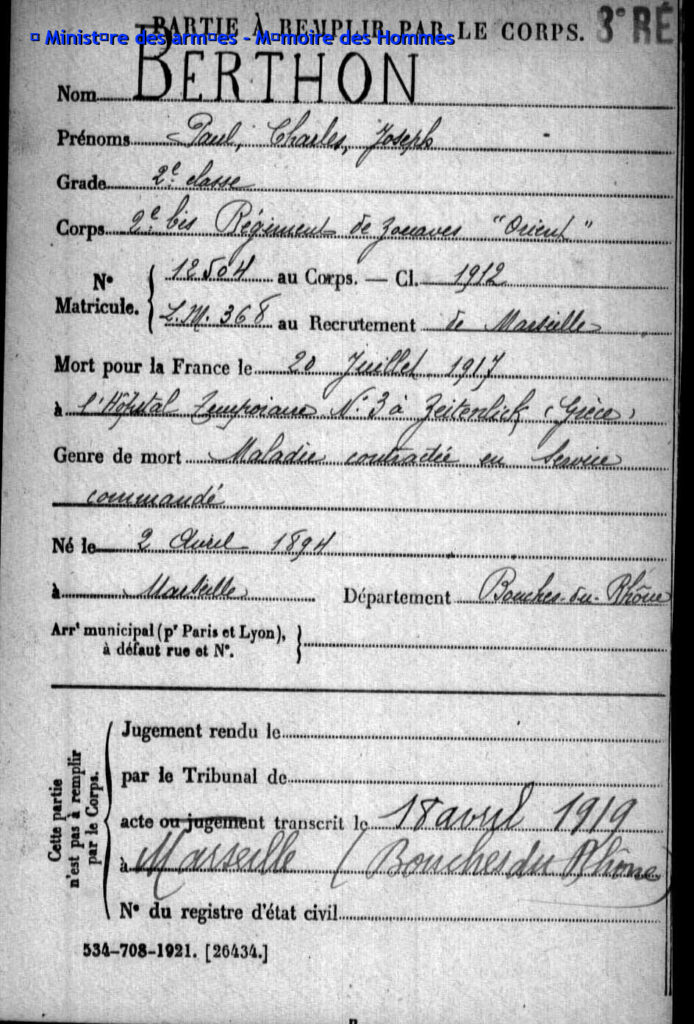 PARTIE À REMPLIR PAR LE CORPS. 3° RÉ
¤ Minist¤re des arm¤es - M¤moire des Hommes
Nom BERTHON
Prénoms Paul, Charles, Joseph
Grade 2e classe
Corps 2e bis Régiment de Zouaves "Orient"
N° Matricule. { 12504 au Corps. — Cl. 1912
L.M. 368 au Recrutement de Marseille
Mort pour la France le 20 Juillet 1917
à l'Hôpital Temporaire N° 3 à Zeitenlick (Grèce)
Genre de mort Maladie contractée en Service
commandé
Né le 2 Avril 1894
à Marseille Département Bouches-du-Rhône
Arrt municipal (pr Paris et Lyon), à défaut rue et N°. }
Cette partie n'est pas à remplir par le Corps. {
Jugement rendu le
par le Tribunal de
acte ou jugement transcrit le 18 avril 1919
à Marseille (Bouches du Rhône)
N° du registre d'état civil
534-708-1921. [26434.]